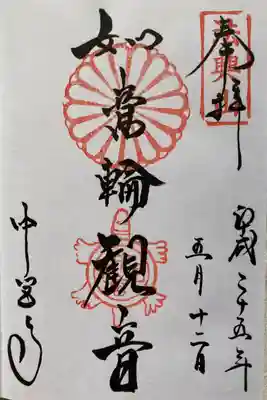 奉拝
平成二十五年
五月十二日
如意輪観音
中宮寺